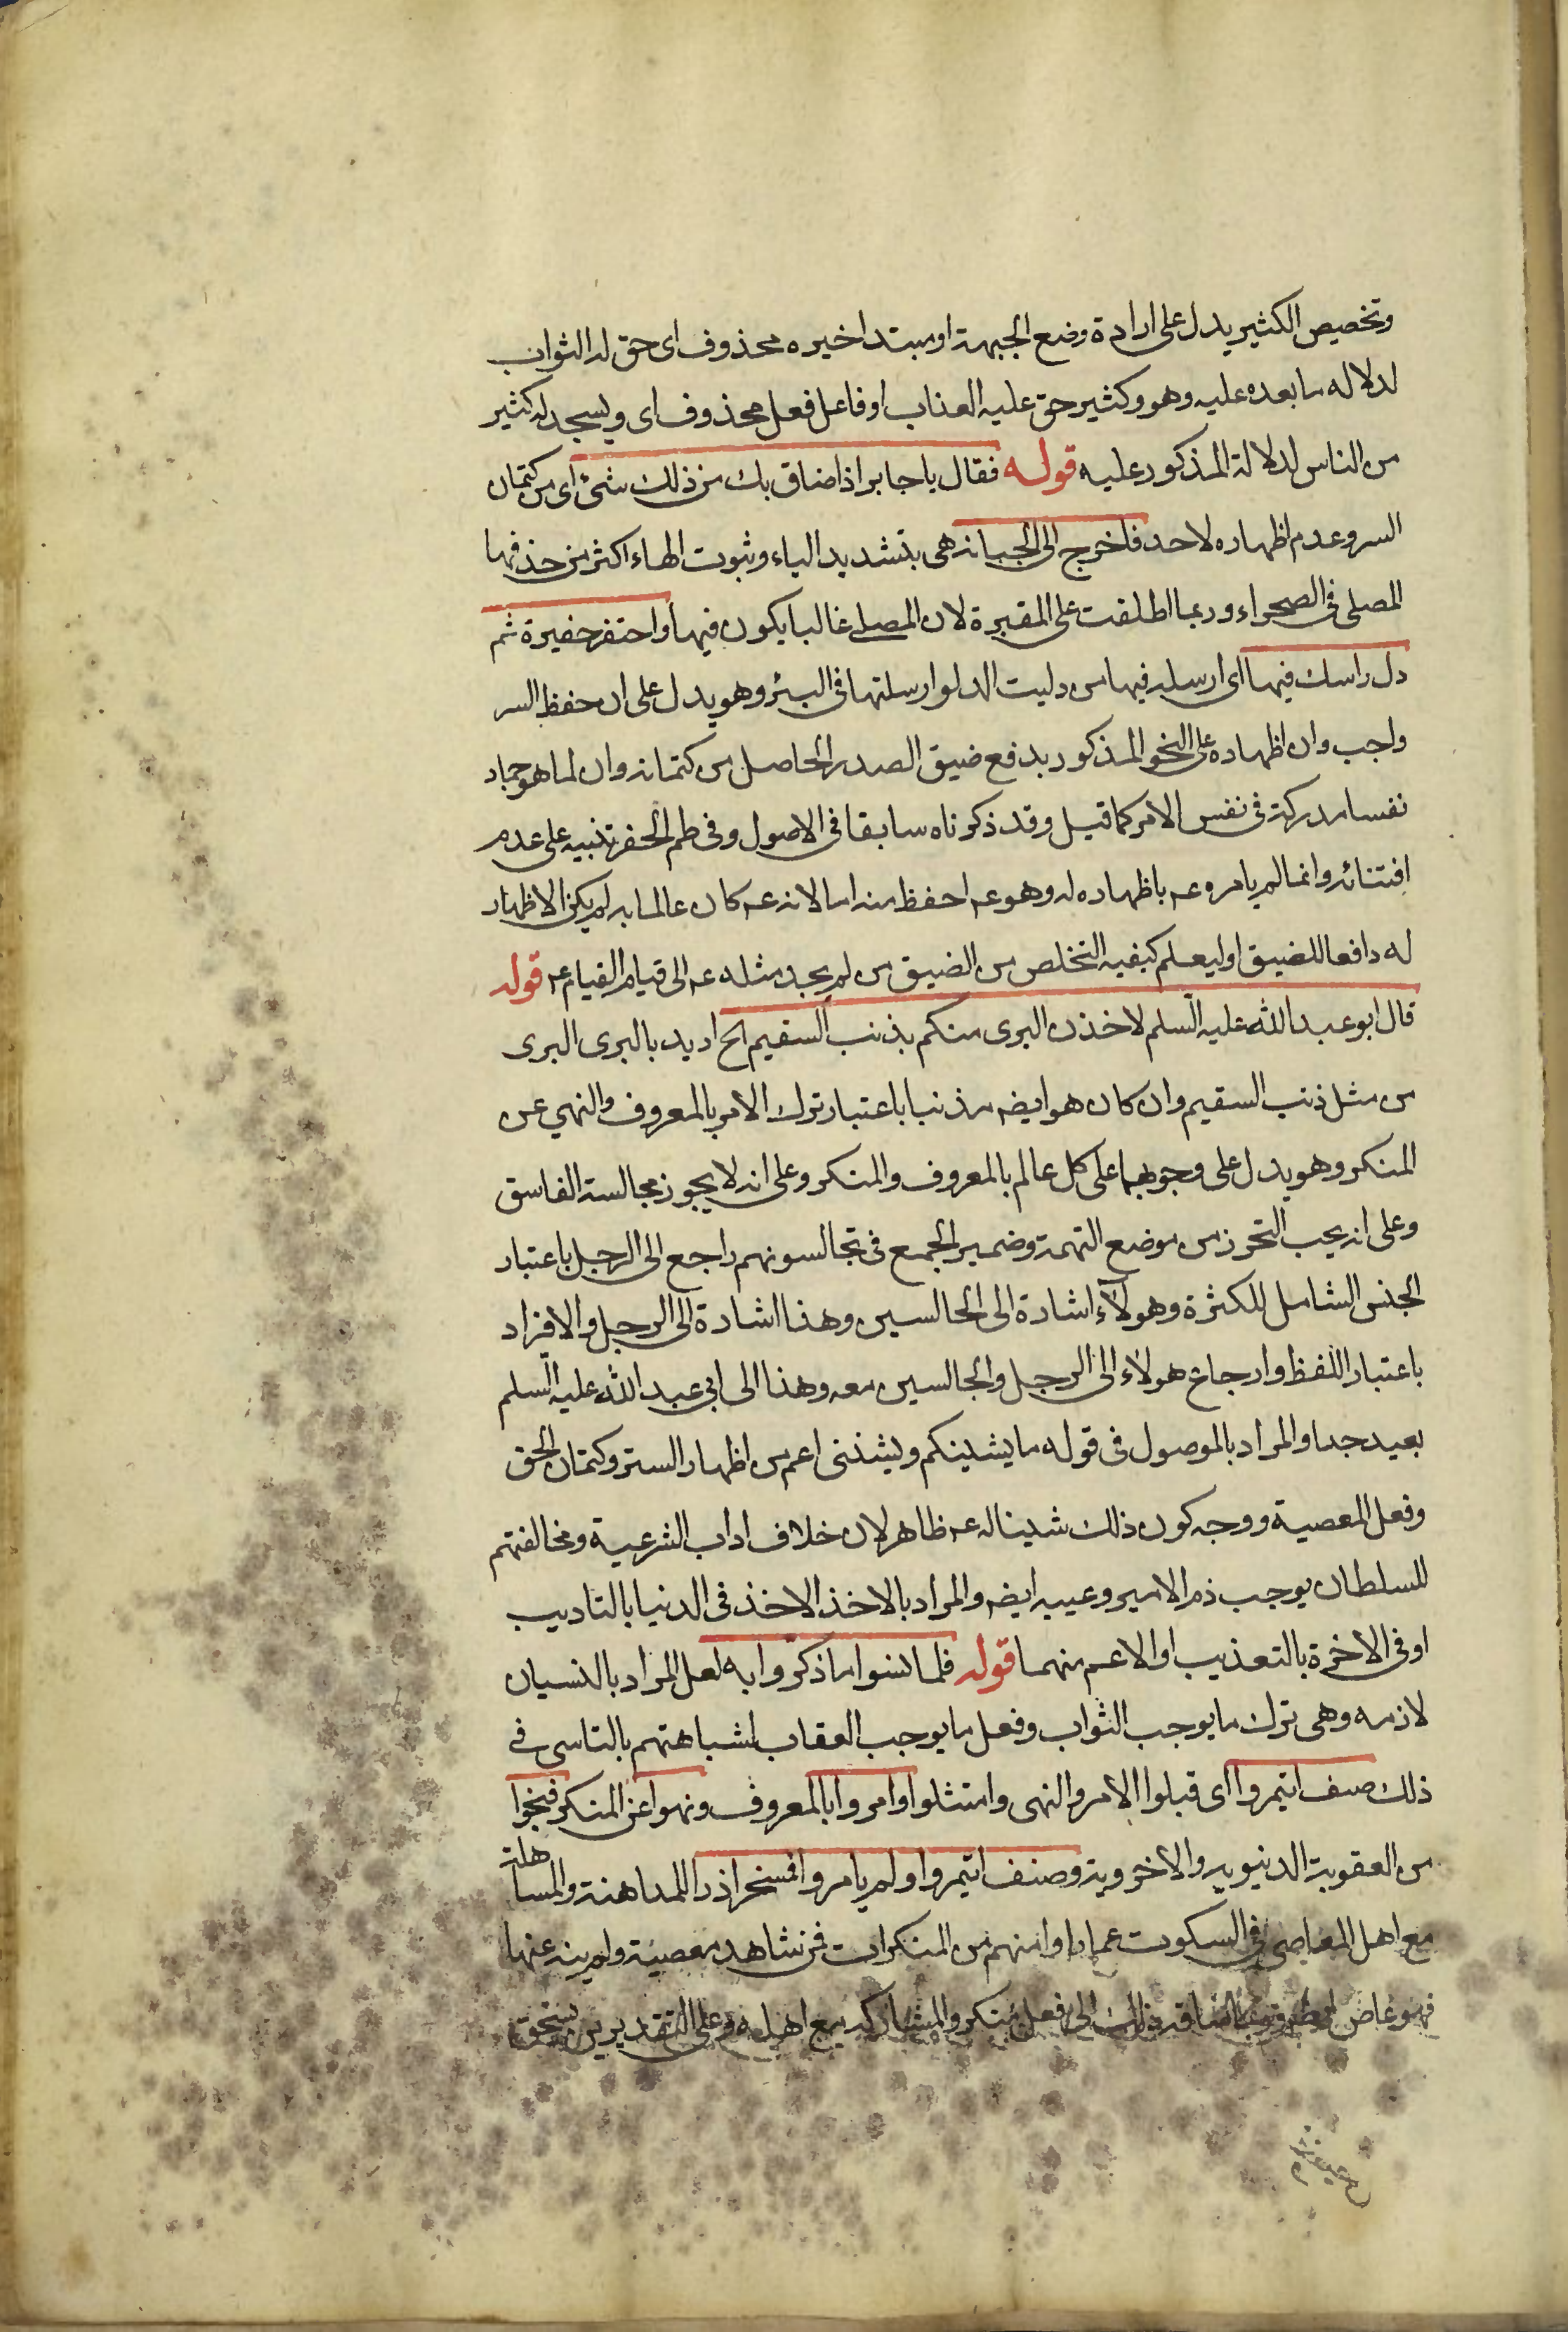 وتخصيص الكثير يدل على ارادة وضع الجبهة او مبتدا خبره محذوف اى حق له الثواب
لدلاله ما بعده عليه وهو وكثير حق عليه العذاب او فاعل فعل محذوف اى ويسجد له كثير
من الناس لدلالة المذكور عليه قوله فقال يا جابر اذا ضاق بك من ذلك شئ اى من كتمان
السر وعدم اظهاره لاحد فاخرج الى الجبانه هى بتشديد الباء وثبوت الهاء اكثر من حذفها
المصلى فى الصحراء وربما اطلقت على المقبرة لان المصلى غالبا يكون فيها واحتفر حفيرة ثم
دل راسك فيها اى ارسله فيها من دليت الدلو ارسلتها فى البئر وهو يدل على ان حفظ السر
واجب وان اظهاره على النحو المذكور يدفع ضيق الصدر الحاصل من كتمانه وان لما هو جماد
نفسا مدركة فى نفس الامر كما قيل وقد ذكرناه سابقا فى الاصول وفى طم الحفر تنبيه على عدم
افتنائه وانما لم يامره عم باظهاره له وهو عم احفظ منه اما لانه عم كان عالما به لم يكن الاظهار
له دافعا للضيق او ليعلم كيفيه التخلص من الضيق من لم يجد مثله عم الى قيام القيام عم قوله
قال ابو عبد الله عليه السلم لاخذن البرى منكم بذنب السقيم الخ اريد بالبرى البرى
من مثل ذنب السقيم وان كان هو ايضه مذنبا باعتبار ترك الامر بالمعروف والنهي عن
المنكر وهو يدل على وجوبهما على كل عالم بالمعروف والمنكر وعلى انه لا يجوز مجالسة الفاسق
وعلى انه يجب التحرز من موضع التهمة وضمير الجمع فى تجالسونهم راجع الى الرجل باعتبار
الجنس الشامل للكثرة وهولاء اشارة الى الجالسين وهذا اشارة الى الرجل والافراد
باعتبار اللفظ وارجاع هولاء الى الرجل والجالسين معه وهذا الى ابى عبد الله عليه السلم
بعيد جدا والمراد بالموصول فى قوله ما يشينكم ويشيننى اعم من اظهار الستر وكتمان الحق
وفعل المعصية ووجه كون ذلك شينا له عم ظاهر لان خلاف اداب الشرعية ومخالفتهم
للسلطان يوجب ذم الامير وعيبه ايضه والمراد بالاخذ الاخذ فى الدنيا بالتاديب
او فى الاخرة بالتعذيب او الاعم منهما قوله فلما نسوا ما ذكروا به لعل المراد بالنسيان
لازمه وهى ترك ما يوجب الثواب وفعل ما يوجب العقاب لشباهتهم بالناسى فى
ذلك صنف ايتمروا اى قبلوا الامر والنهى وامتثلوا وامروا بالمعروف ونهوا عن المنكر فنجوا
من العقوبة الدنيويه والاخرويه وصنف ايتمروا ولم يامروا فمسخوا ذرا للمداهنة والمساهلة
مع اهل المعاصى فى السكوت عما راوا منهم من المنكرات فمن شاهد معصية ولم ينه عنها
فهو عاص ذلك الى فعل منكر والمشاركه مع اهله وعلى التقديرين يستحق